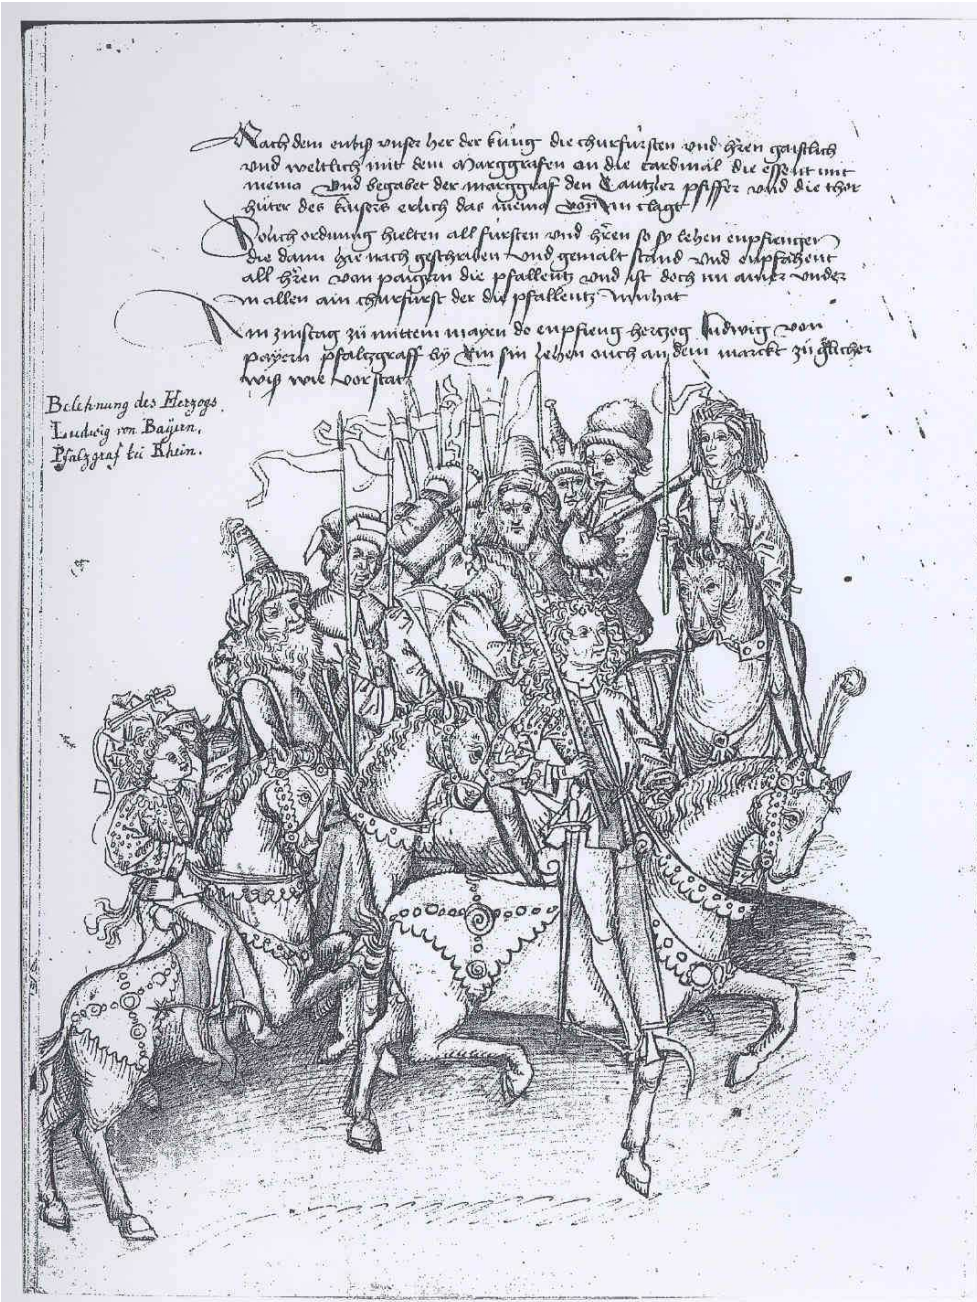 Nach dem entiß unser her der küng die churfürsten und hren gaistlich
und weltlich mit dem Marggrafen on die cardinäl die essent mit
nemo und begabet der marggraf den Cantzler pfiffer und die thor
hüter des kaisers erlich das nemo von im clagt
Solich ordnung hielten all fürsten und hren so sy lehen enpfiengen
die dann hie nach geschriben und gemalt stand und enpfahent
all hren von paigern die pfallentz und ist doch nu ainer under
in allen ain churfürst der die pfallentz innhat
Am zinstag zü mittem mayen do enpfieng hertzog ludwig von
payern pfaltzgraff by Rin sin lehen ouch an dem marckt zü glicher
wiß wie vorstat
Belehnung des Herzogs
Ludwig von Bayern,
Pfalzgraf bei Rhein.